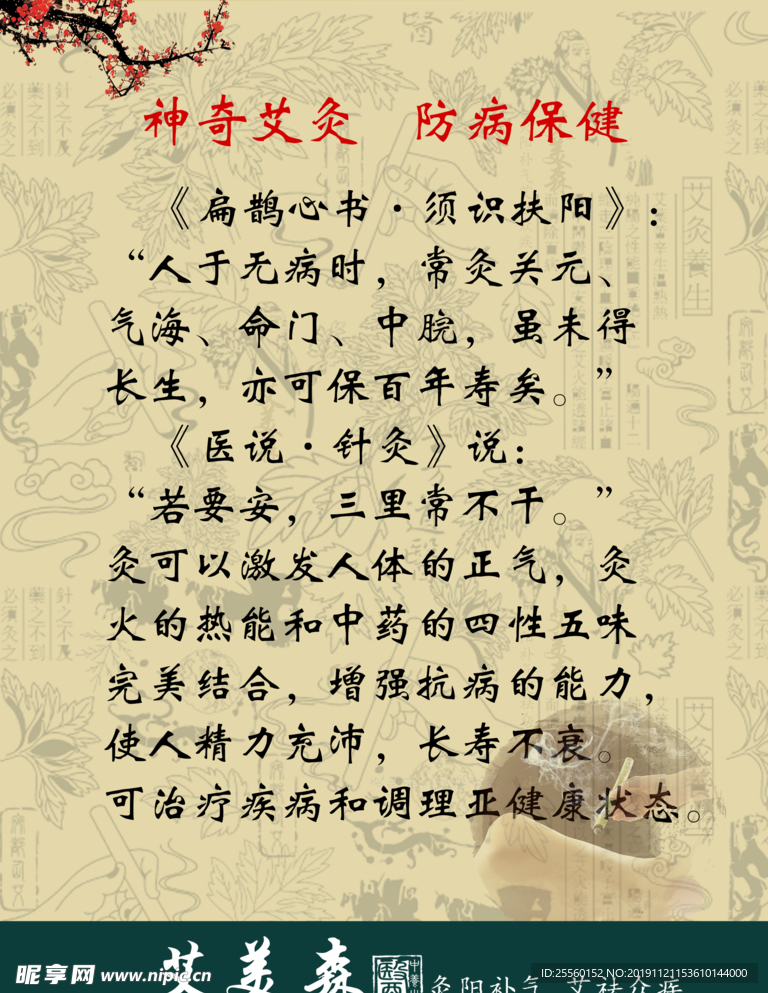 神奇艾灸 防病保健
《扁鹊心书·须识扶阳》：
“人于无病时，常灸关元、
气海、命门、中脘，虽未得
长生，亦可保百年寿矣。”
《医说·针灸》说：
“若要安，三里常不干。”
灸可以激发人体的正气，灸
火的热能和中药的四性五味
完美结合，增强抗病的能力，
使人精力充沛，长寿不衰。
可治疗疾病和调理亚健康状态。
艾美森
灸阳补气 艾祛众疾
昵享网 www.nipic.cn
ID:25560152 NO:20191121153610144000
艾灸養生